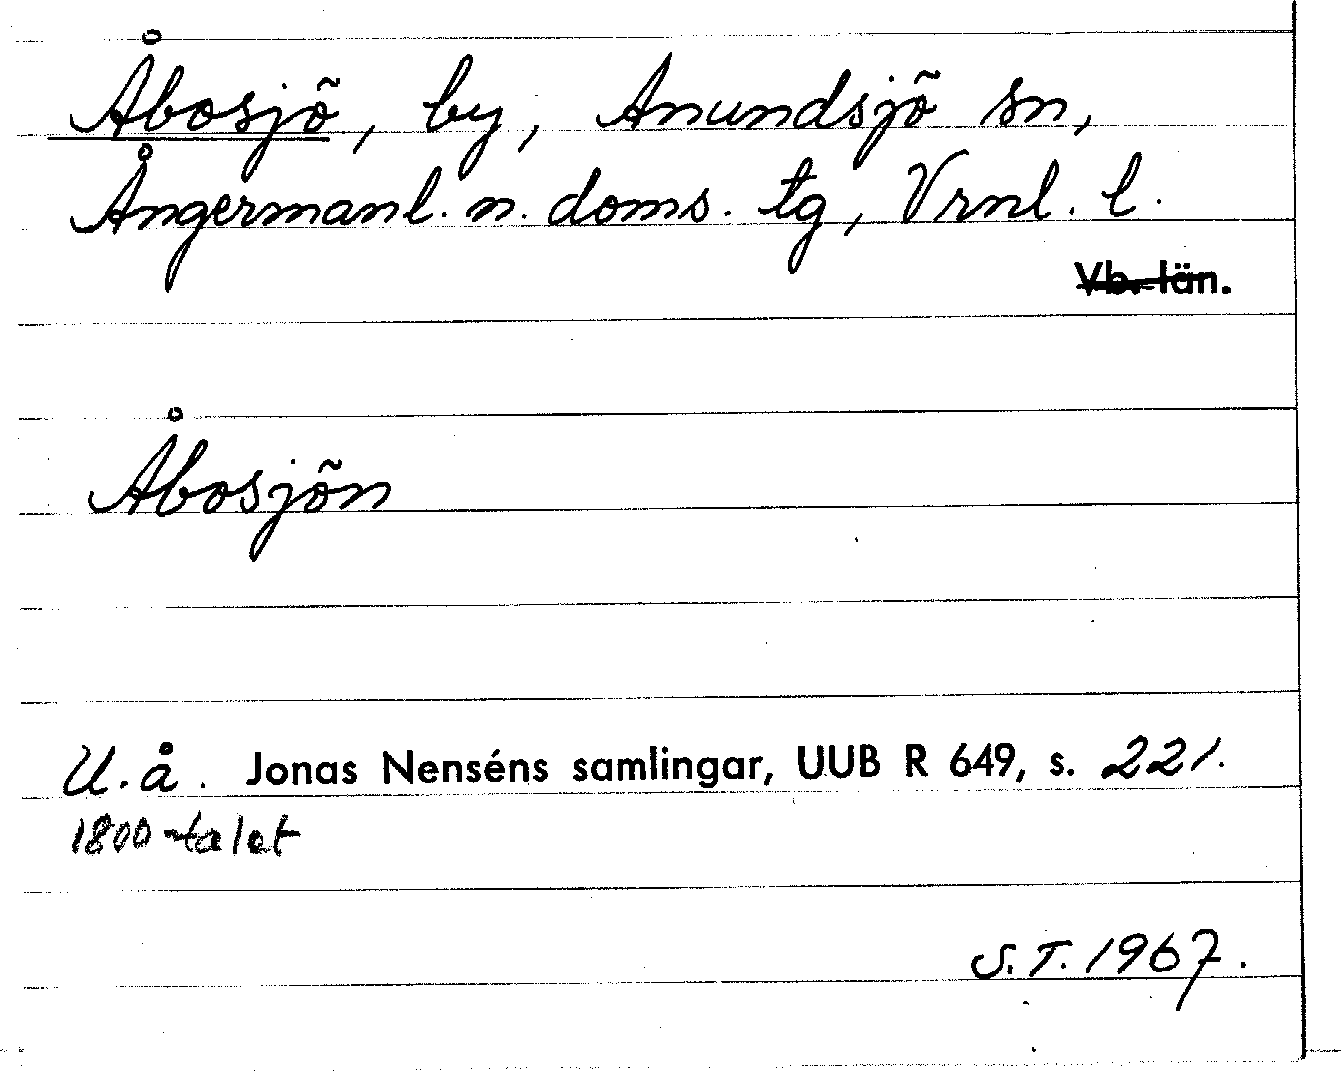 Åbosjö, by, Anundsjö sn,
Ångermanl. n. doms. tg, Vrnl. l.
Vb. län.
Åbosjön
U. å. Jonas Nenséns samlingar, UUB R 649, s. 221.
1800-talet
S.T. 1967.